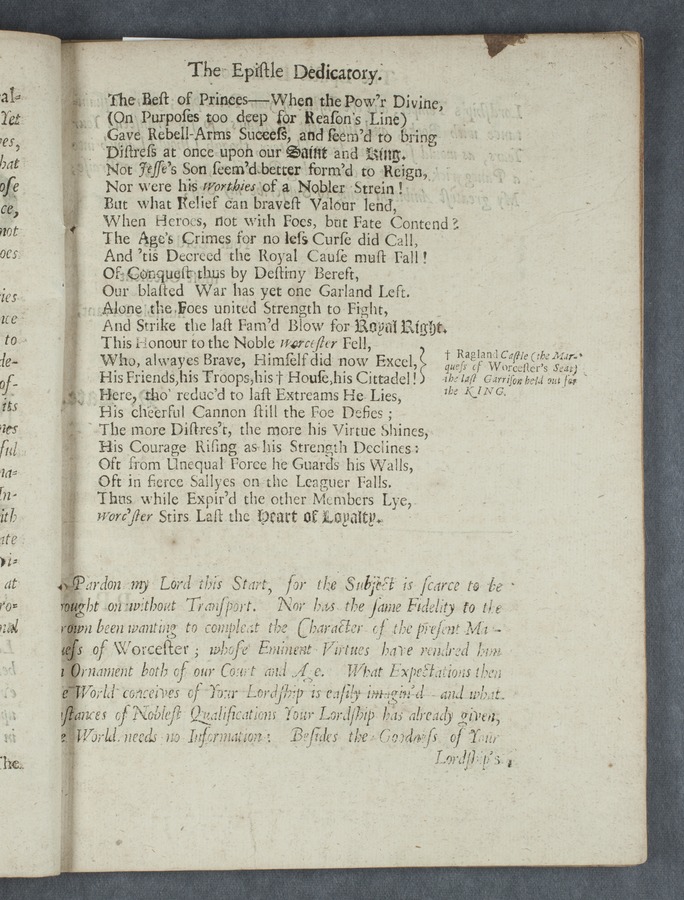 al-
Yet
es,
hat
ose
ce,
not
oes
ies
nce
to
de-
of-
its
nes
ful
na-
In-
ith
ate
at
ro-
The
The Epiſtle Dedicatory.
The Beſt of Princes—When the Pow'r Divine,
(On Purpoſes too deep for Reaſon's Line)
Gave Rebell-Arms Succeſs, and ſeem'd to bring
Diſtreſs at once upon our Saint and King.
Not Jeſſe's Son ſeem'd better form'd to Reign,
Nor were his Worthies of a Nobler Strein!
But what Relief can braveſt Valour lend,
When Heroes, not with Foes, but Fate Contend?
The Age's Crimes for no leſs Curſe did Call,
And 'tis Decreed the Royal Cauſe muſt Fall!
Of Conqueſt thus by Deſtiny Bereft,
Our blaſted War has yet one Garland Left.
Alone the Foes united Strength to Fight,
And Strike the laſt Fam'd Blow for Royal Right.
This Honour to the Noble Worceſter Fell,
Who, alwayes Brave, Himſelf did now Excel,
His Friends, his Troops, his † Houſe, his Cittadel!
† Ragland Caſtle (the Mar-
queſs of Worceſter's Seat)
the laſt Garriſon held out for
the KING.
Here, tho' reduc'd to laſt Extreams He Lies,
His cheerful Cannon ſtill the Foe Defies;
The more Diſtres't, the more his Virtue Shines,
His Courage Riſing as his Strength Declines:
Oft from Unequal Force he Guards his Walls,
Oft in fierce Sallyes on the Leaguer Falls.
Thus while Expir'd the other Members Lye,
Worc'ſter Stirs Laſt the Heart of Loyalty.
Pardon my Lord this Start, for the Subject is ſcarce to be
rought on without Tranſport. Nor has the ſame Fidelity to the
rown been wanting to compleat the Character of the preſent Ma-
ueſs of Worceſter; whoſe Eminent Virtues have rendred him
n Ornament both of our Court and Age. What Expectations then
e World conceives of Your Lordſhip is eaſily imagin'd and what
nſtances of Nobleſt Qualifications Your Lordſhip has already given,
e World needs no Information: Beſides the Goodneſs of Your
Lordſhip's